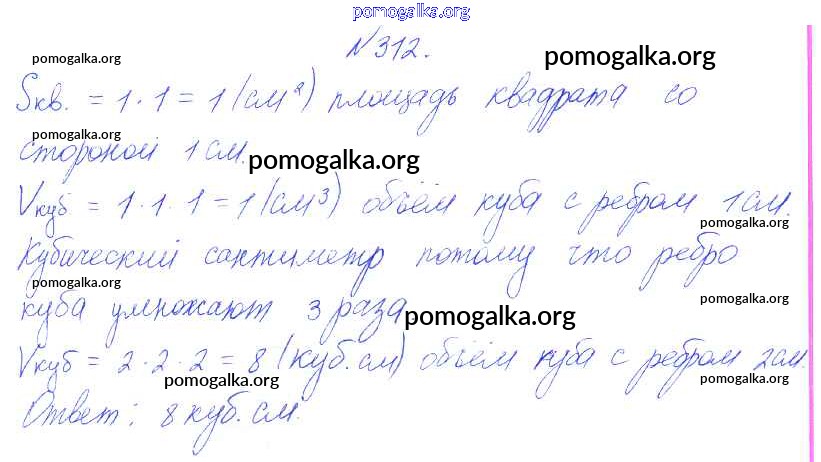 pomogalka.org
N 312.
pomogalka.org pomogalka.org
Sкв. = 1 · 1 = 1 (см²) площадь квадрата со
pomogalka.org
стороной 1 см.
pomogalka.org
Vкуб = 1 · 1 · 1 = 1 (см³) объём куба с ребром 1 см.
pomogalka.org
Кубический сантиметр потому что ребро
pomogalka.org pomogalka.org
куба умножают 3 раза
pomogalka.org
Vкуб = 2 · 2 · 2 = 8 (куб. см) объём куба с ребром 2 см.
pomogalka.org pomogalka.org
Ответ: 8 куб. см.